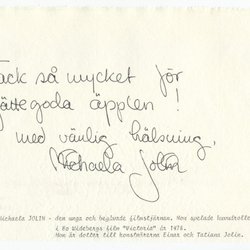 Tack så mycket för
jättegoda äpplen!
med vänlig hälsning,
Michaela Jolin
Michaela JOLIN - den unga och begåvade filmstjärnan. Hon spelade huvudrollen
i Bo Widebergs film "Victoria" år 1978.
Hon är dotter till konstnärerna Einar och Tatiana Jolin.